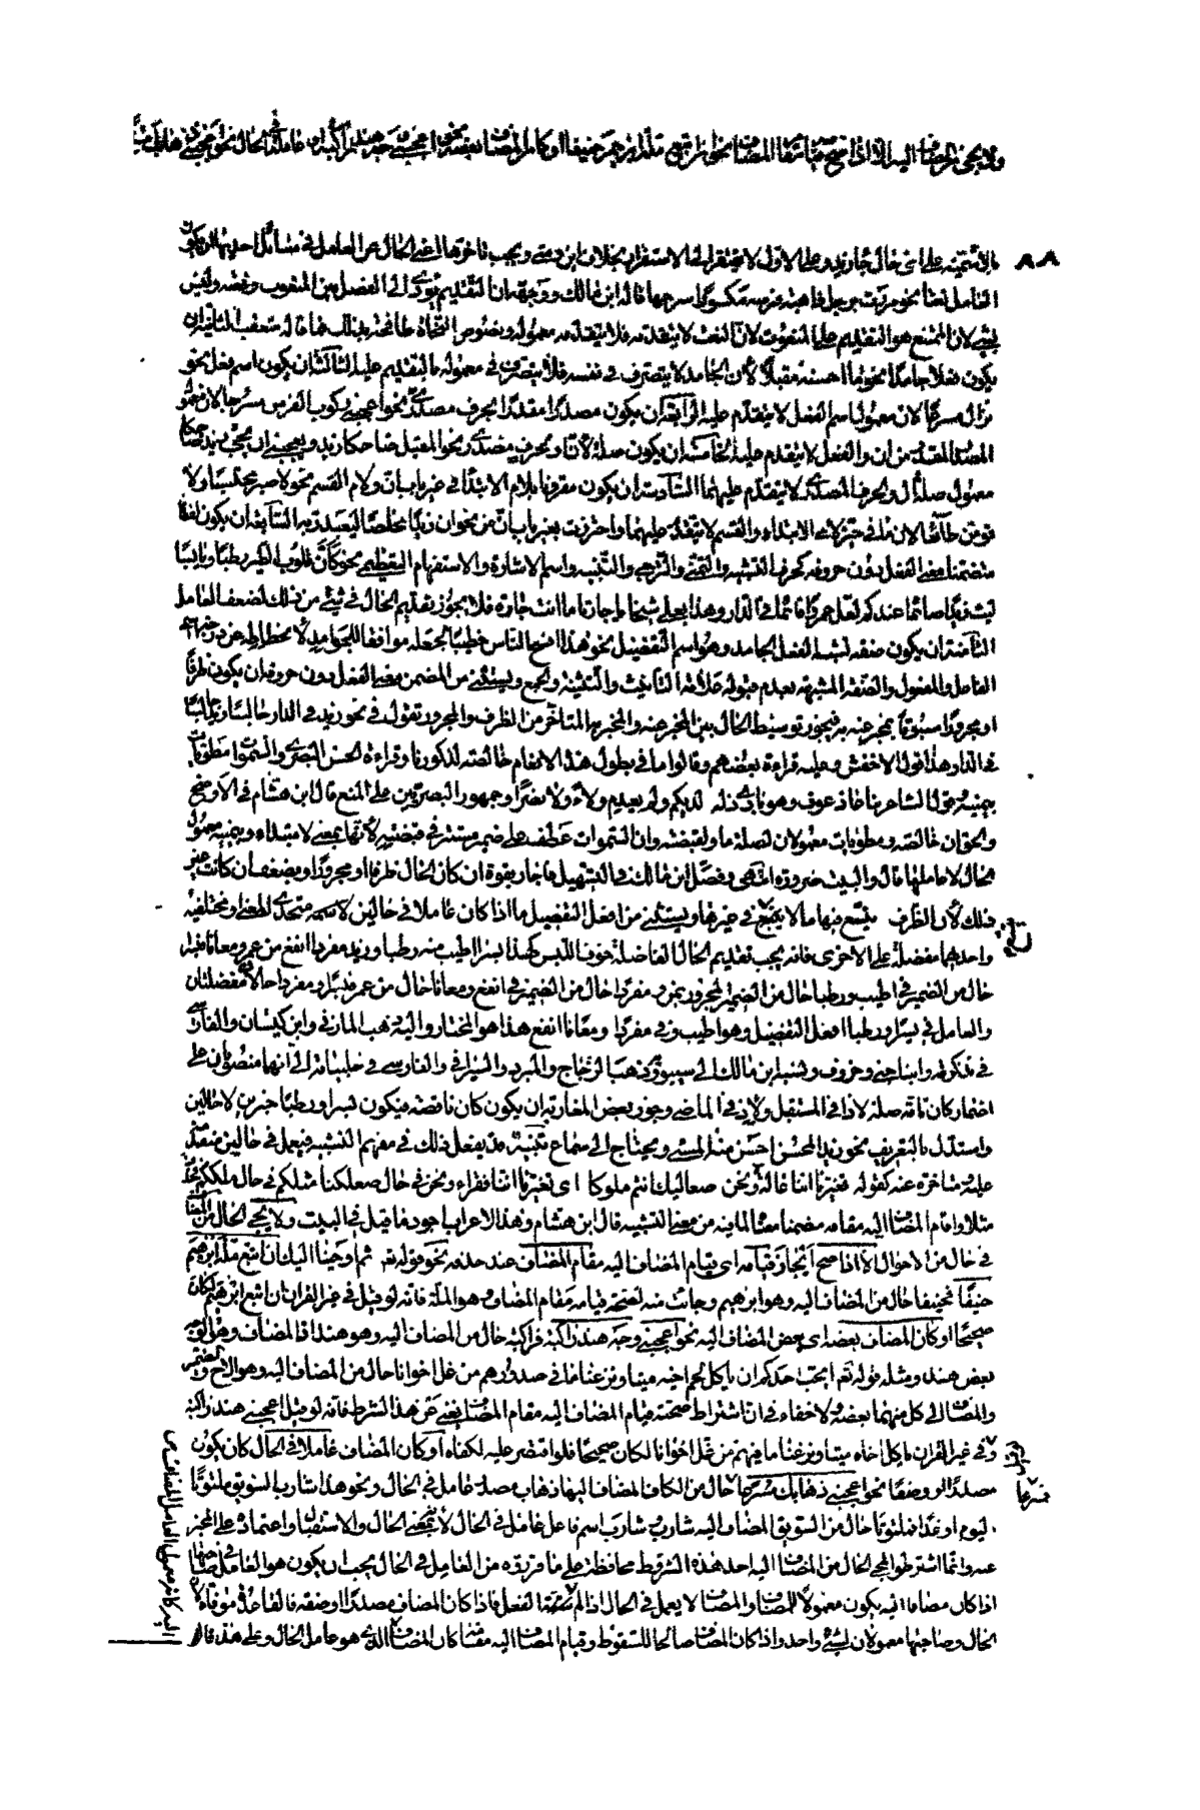 ولا يجئ من المضاف اليه الا اذا صح قيامه مقام المضاف نحو اتبع ملة ابراهيم حنيفا او كان المضاف بعضه نحو اعجبني وجه هند راكبة او عاملا في الحال نحو اعجبني ذهابك مسرعا
٨٨
الاستقرار بخلاف ابن ويجب تاخيرها اعني الحال عن العامل في مسائل احديها ان يكون
العامل نعتا نحو مررت برجل ذاهبة فرسه مكسورا سرجها قاله ابن مالك ووجهه ان التقديم يؤدي الى الفصل بين المنعوت ونعته وليس
بشئ لان الممتنع هو التقديم على المنعوت لان النعت لا يتقدمه فلا يتقدمه معموله ونصوص النحاة طافحة بذلك الثانية ان
يكون فعلا جامدا نحو ما احسنه مقبلا لان الجامد لا يتصرف في نفسه فلا يتصرف في معموله بالتقديم عليه الثالثة ان يكون اسم فعل نحو
نزال مسرعا لان معمول اسم الفعل لا يتقدم عليه الرابعة ان يكون مصدرا مقدرا بحرف مصدري نحو اعجبني ركوب الفرس مسرجا لان معمول
المصدر المقدر من ان والفعل لا يتقدم عليه الخامسة ان يكون صلة لال او بحرف مصدري نحو المقبل ضاحكا زيد ويعجبني ان يجئ زيد ضاحكا
معمول صلة ال والحرف المصدري لا يتقدم عليهما السادسة ان يكون مقرونا بلام الابتداء في غير باب ان ولام القسم نحو لاصبر محتسبا ولا
قومن طائعا لان ما في حيز لام الابتداء والقسم لا يتقدم عليهما واحترزت بغير باب ان من نحو ان زيدا مخلصا ليعبد ربه السابعة ان يكون لفظا
متضمنا معنى الفعل دون حروفه كحرف التشبيه والتمني والترجي والتنبيه واسم الاشارة والاستفهام التعظيمي نحو كأن قلوب الطير رطبا ويابسا
ليت زيدا صائما عندك لعل عمروا قائما في الدار وهذا بعلي شيخا يا جارتا ما انت جارة فلا يجوز تقديم الحال في شئ من ذلك لضعف العامل
الثامنة ان يكون صفة تشبه الفعل الجامد وهو اسم التفضيل نحو هذا افصح الناس خطيبا لجعله موافقا للجوامد لانحطاطه عن درجة اسم
الفاعل والمفعول والصفة المشبهة بعدم قبوله علامة التأنيث والتثنية والجمع ويستثنى من المضمن معنى الفعل دون حروفه ان يكون ظرفا
او مجرورا مسبوقا بمخبر عنه به فيجوز توسيط الحال بين المخبر عنه والمخبر به المتاخر من الظرف والمجرور تقول في نحو زيد في الدار جالسا زيد جالسا
في الدار هذا قول الاخفش وعليه قراءة بعضهم وقالوا ما في بطون هذه الانعام خالصة لذكورنا وقراءة الحسن البصري والسموات مطويات
بيمينه وقول الشاعر بنا عاذ عوف وهو بادي ذلة لديكم ولم يعدم ولاء ولا نصرا وجمهور البصريين على المنع قال ابن هشام في الاوضح
والحق ان خالصة ومطويات معمولان لصلة ما ولقبضته وان السموات عطف على ضمير مستتر في قبضته لانها بمعنى لا مبتداء وبيمينه معمول
الحال لا عاملها قال والبيت ضرورة انتهى وفصل ابن مالك في التسهيل فاجاز بقوة ان كان الحال ظرفا او مجرورا وبضعف ان كانت غير
ذلك لان الظرف يتسع فيها ما لا يتسع في غيرها ويستثنى من افعل التفضيل ما اذا كان عاملا في حالين لاسمين متحدي المعنى او مختلفيه
واحدهما مفضلة على الاخرى فانه يجب تقديم الحال الفاضلة خوف اللبس كهذا بسرا اطيب منه رطبا وزيد مفردا انفع من عمرو معانا فبسرا
حال من الضمير في اطيب ورطبا حال من الضمير المجرور بمن ومفردا حال من الضمير في انفع ومعانا حال من عمرو فبسرا ومفردا حالان مفضلتان
والعامل في بسرا ورطبا افعل التفضيل وهو اطيب وفي مفردا ومعانا انفع هذا هو المختار واليه ذهب المازني وابن كيسان والفارسي
في تذكرته وابنا جني وخروف ونسبه ابن مالك الى سيبويه وذهب الزجاج والمبرد والسيرافي والفارسي في حلبياته الى انهما منصوبان على
اضمار كان تامة صلة لاذا في المستقبل ولاذ في الماضي وجوز بعض المغاربة ان يكون كان ناقصة فيكون بسرا ورطبا خبرين لا حالين
واستدل بالتعريف نحو زيد المحسن احسن منه المسئ ويحتاج الى سماع تنبيه قد يفعل ذلك في مفهم التشبيه فيعمل في حالين متقدمة
عليه ومتاخرة عنه كقوله تعيرنا اننا عالة ونحن صعاليك انتم ملوكا اي تعيرنا اننا فقراء ونحن في حال صعلكتنا مثلكم في حال ملككم فحذف
مثلا واقام المضاف اليه مقامه مضمنا معناه لما فيه من معنى التشبيه قال ابن هشام وهذا الاعراب اجود ما قيل في البيت ولا يجئ الحال من المضاف
في حال من الاحوال الا اذا صح اي جاز قيامه اي قيام المضاف اليه مقام المضاف عند حذفه نحو قوله تعم ثم اوحينا اليك ان اتبع ملة ابرهيم
حنيفا فحنيفا حال من المضاف اليه وهو ابرهيم وجاءت منه لصحة قيامه مقام المضاف وهو الملة فانه لو قيل في غير القران ان اتبع ابرهيم لكان
صحيحا او كان المضاف بعضه اي بعض المضاف اليه نحو اعجبني وجه هند راكبة فراكبة حال من المضاف اليه وهو هند اذ المضاف وهو الوجه
بعض هند ومثله قوله تعم ايحب احدكم ان ياكل لحم اخيه ميتا ونزعنا ما في صدورهم من غل اخوانا حال من المضاف اليه وهو الاخ والضمير
والمضاف الى كل منهما بعضه ولا خفاء في ان اشتراط صحة قيام المضاف اليه مقام المضاف يغني عن هذا الشرط فانه لو قيل اعجبني هند راكبة
وفي غير القران ياكل اخاه ميتا ونزعنا ما فيهم من غل اخوانا لكان صحيحا فلو اقتصر عليه لكفاه او كان المضاف عاملا في الحال كان يكون
مصدرا او وصفا نحو اعجبني ذهابك مسرعا حال من الكاف المضاف اليها ذهاب مصدر عامل في الحال ونحو هذا شارب السويق ملتوتا
اليوم او غدا فملتوتا حال من السويق المضاف اليه شارب وشارب اسم فاعل عامل في الحال لانه بمعنى الحال والاستقبال واعتماده على المخبر
عنه وانما اشترطوا لمجئ الحال من المضاف اليه احد هذه الشروط محافظة على ما قرروه من العامل في الحال يجب ان يكون هو العامل في صاحبها
اذا كان مضافا اليه يكون معمولا للمضاف والمضاف لا يعمل في الحال اذا لم يشبه الفعل فاذا كان المضاف مصدرا او صفة فالقاعدة موفاة لان
الحال وصاحبها معمولان لشئ واحد واذا كان المضاف صالحا للسقوط وقيام المضاف اليه مقامه كان المضاف اليه هو عامل الحال وعلى هذا فلا